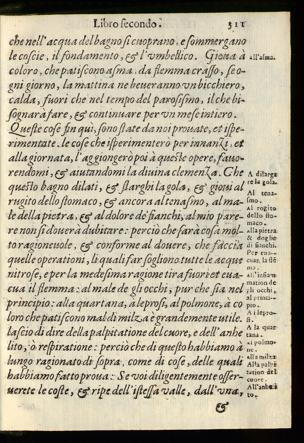 Libro secondo. 311
che nell'acqua del bagno si cuoprano, e sommergano
le coscie, il fondamento, & l'umbellico. Gioua à
coloro, che patiscono asma, da flemma crasso, se o-
gni giorno, la mattina ne beueranno un bicchiero,
calda, fuori che nel tempo del parosismo, il che bi-
sognarà fare, & continuare per un mese intiero.
Queste cose sin quì, sono state da noi prouate, et ispe-
rimentate. le cose che isperimenterò per innanzi, et
alla giornata, l'aggiongerò poi à queste opere, fauo-
rendomi, & aiutandomi la diuina clemenza. Che
questo bagno dilati, & slarghi la gola, & gioui al
rugito dello stomaco, & ancora al tenasmo, al ma-
le della pietra, & al dolore de fianchi, al mio pare-
re non si douerà dubitare: perciò che sarà cosa mol-
to ragioneuole, & conforme al douere, che faccia
quelle operationi, li quali far sogliono tutte le acque
nitrose, e per la medesima ragione tira fuori et eua-
cua il flemma: al male de gli occhi, pur che sia nel
principio: alla quartana, à leprosi, al polmone, à co
loro che patiscono mal di milza è grandemente utile.
lascio di dire della palpitatione del cuore, e dell'anhe
lito, ò respiratione: perciò che di questo habbiamo à
lungo ragionato di sopra, come di cose, delle quali
habbiamo fatto proua: Se voi diligentemente osser-
uerete le coste, & ripe dell'istessa valle, dall'vna,
&
all'asma.
A dilarga
re la gola.
Al tena-
smo.
Al rogito
dello sto-
maco.
alla pietra
& doglie
di fianchi.
Per eua-
cuar la flé
ma.
all'infiam
mation de
gli occhi,
al princi-
pio.
A i lepro-
si.
A la quar
tana.
al polmo-
ne.
alla milza
Alla palpi
tation del
cuore.
All'anheli
to.